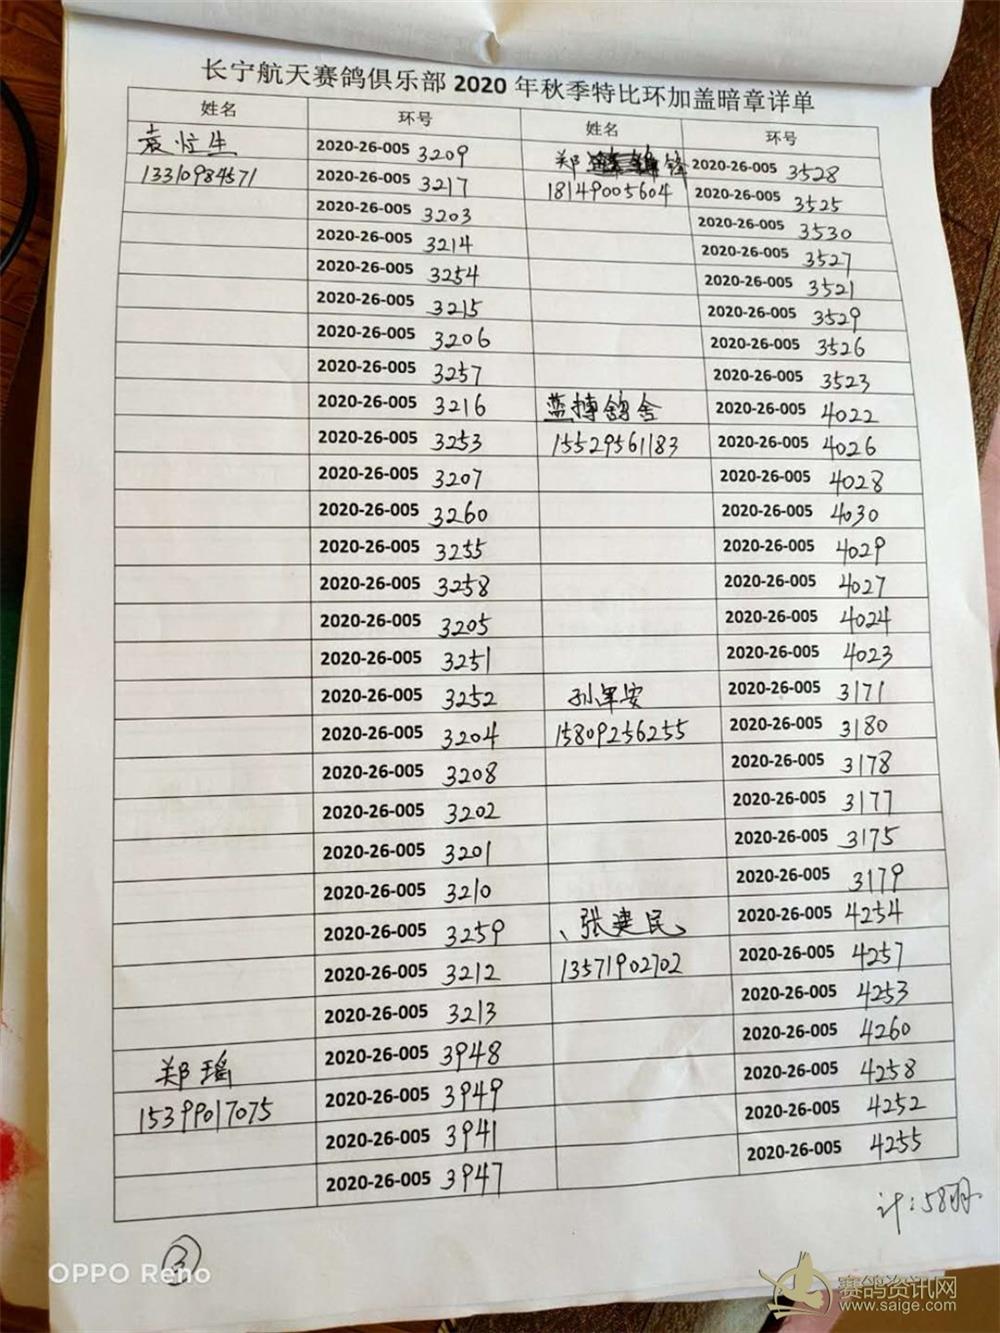 长宁航天赛鸽俱乐部 2020 年秋季特比环加盖暗章详单
姓名 环号 姓名 环号
袁忙生 2020-26-005 3209 郑 锋 2020-26-005 3528
13310984571 2020-26-005 3217 18149005604 2020-26-005 3525
2020-26-005 3203 2020-26-005 3530
2020-26-005 3214 2020-26-005 3527
2020-26-005 3254 2020-26-005 3521
2020-26-005 3215 2020-26-005 3529
2020-26-005 3206 2020-26-005 3526
2020-26-005 3257 2020-26-005 3523
2020-26-005 3216 蓝搏鸽舍 2020-26-005 4022
2020-26-005 3253 15529561183 2020-26-005 4026
2020-26-005 3207 2020-26-005 4028
2020-26-005 3260 2020-26-005 4030
2020-26-005 3255 2020-26-005 4029
2020-26-005 3258 2020-26-005 4027
2020-26-005 3205 2020-26-005 4024
2020-26-005 3251 2020-26-005 4023
2020-26-005 3252 孙军安 2020-26-005 3171
2020-26-005 3204 15809256255 2020-26-005 3180
2020-26-005 3208 2020-26-005 3178
2020-26-005 3202 2020-26-005 3177
2020-26-005 3201 2020-26-005 3175
2020-26-005 3210 2020-26-005 3179
2020-26-005 3259 、张建民、 2020-26-005 4254
2020-26-005 3212 13571902702 2020-26-005 4257
2020-26-005 3213 2020-26-005 4253
郑瑶 2020-26-005 3948 2020-26-005 4260
15399017075 2020-26-005 3949 2020-26-005 4258
2020-26-005 3941 2020-26-005 4252
2020-26-005 3947 2020-26-005 4255
计:58羽
③
OPPO Reno
赛鸽资讯网
www.saige.com